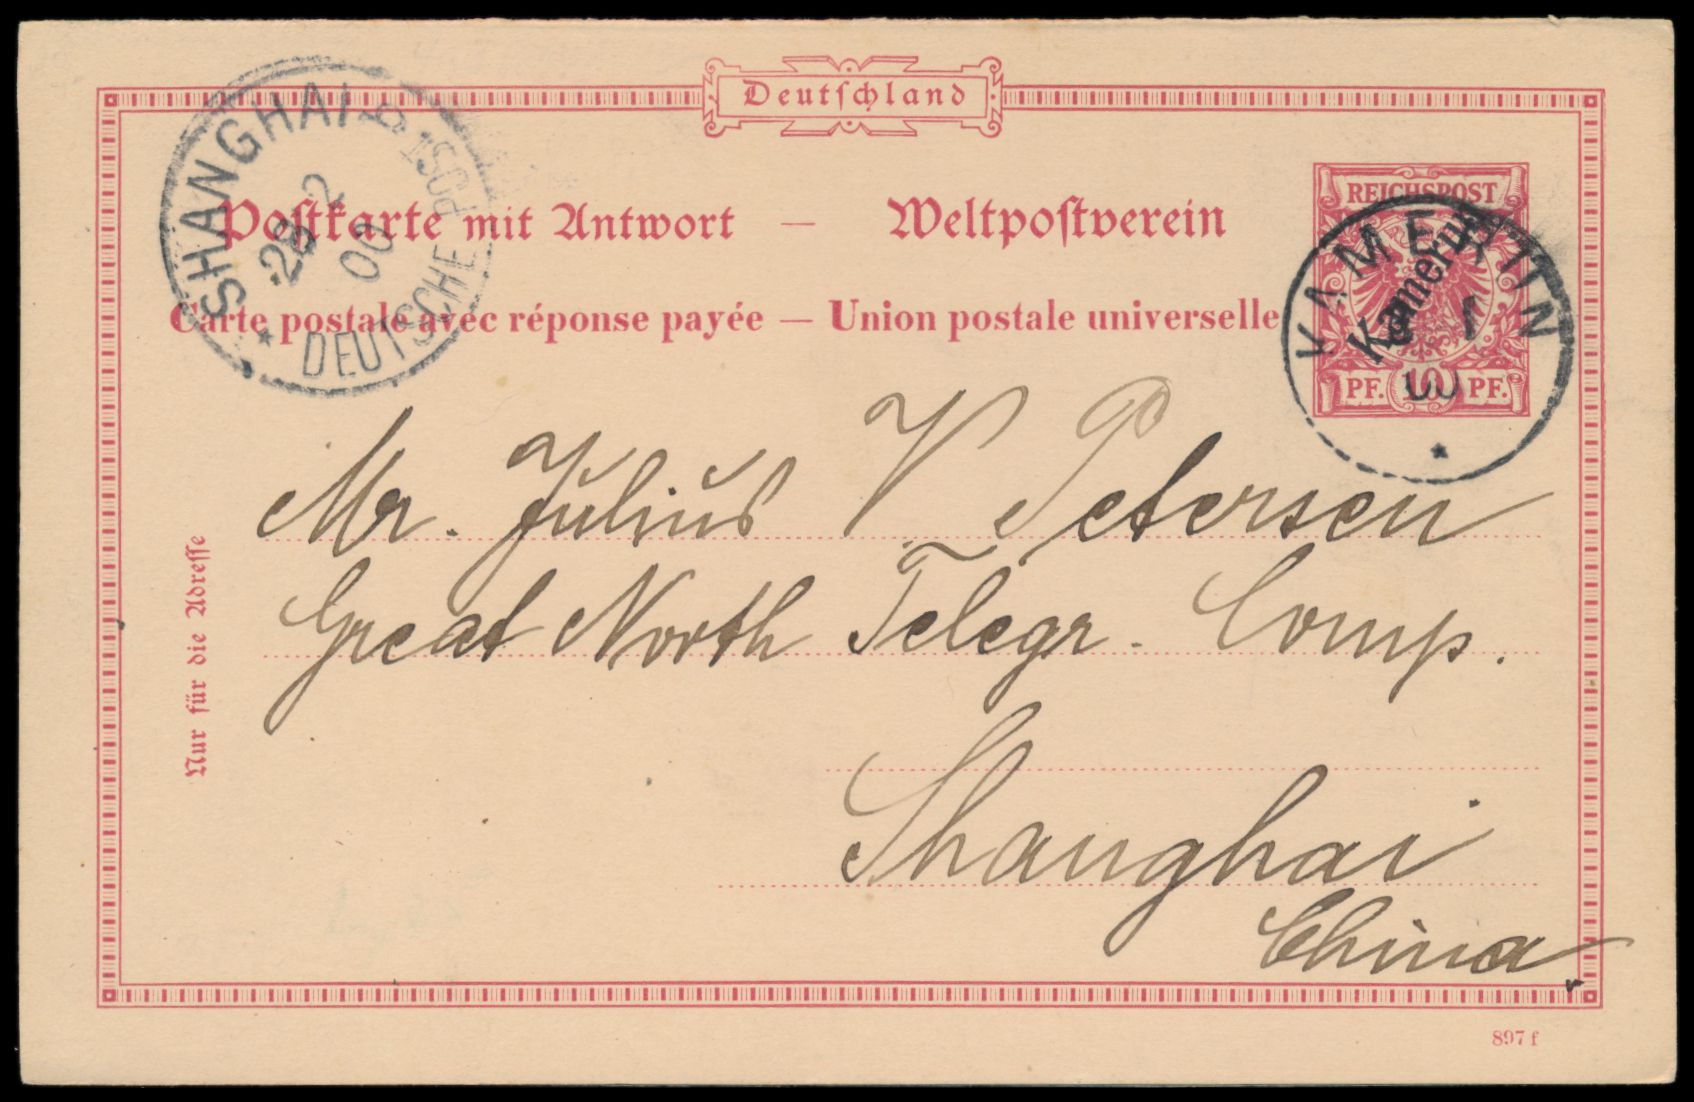 Deutschland
SHANGHAI
DEUTSCHE POST
28 2
00
REICHSPOST
Kamerun
KAMERUN
1
00
PF. 10 PF.
Postkarte mit Antwort — Weltpostverein
Carte postale avec réponse payée — Union postale universelle
Nur für die Adresse
Mr. Julius V. Petersen
Great North Telegr. Comp.
Shanghai
China
897 f